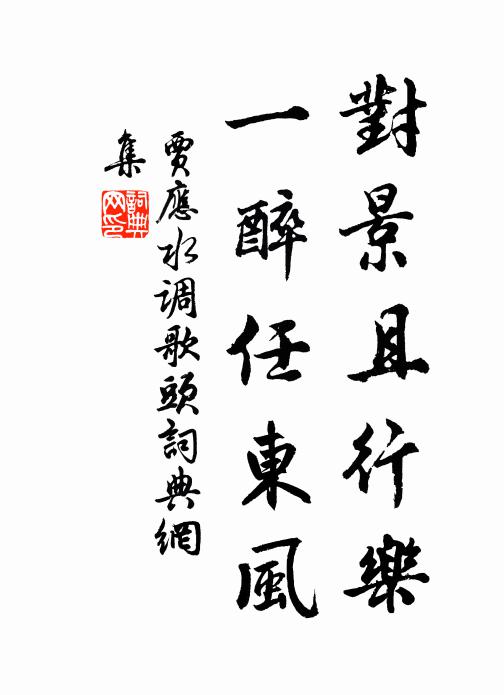 對景且行樂
一醉任東風
賈應水调歌頭詞典網
集
詞典網印